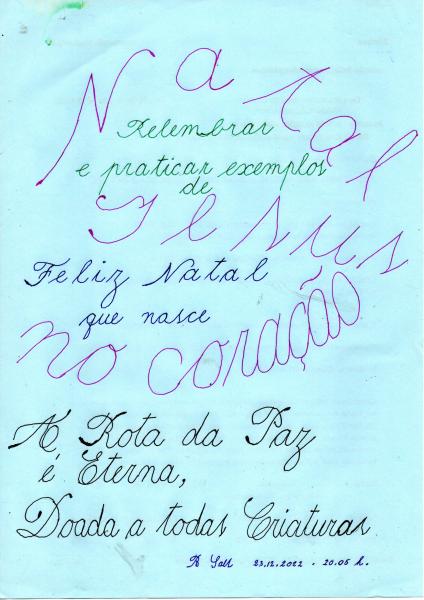 Natal
Relembrar
e praticar exemplos
de
Jesus
Feliz Natal
que nasce
no coração
A Rota da Paz
é Eterna,
Doada a todas Criaturas
23.12.2022 . 20.05 h.